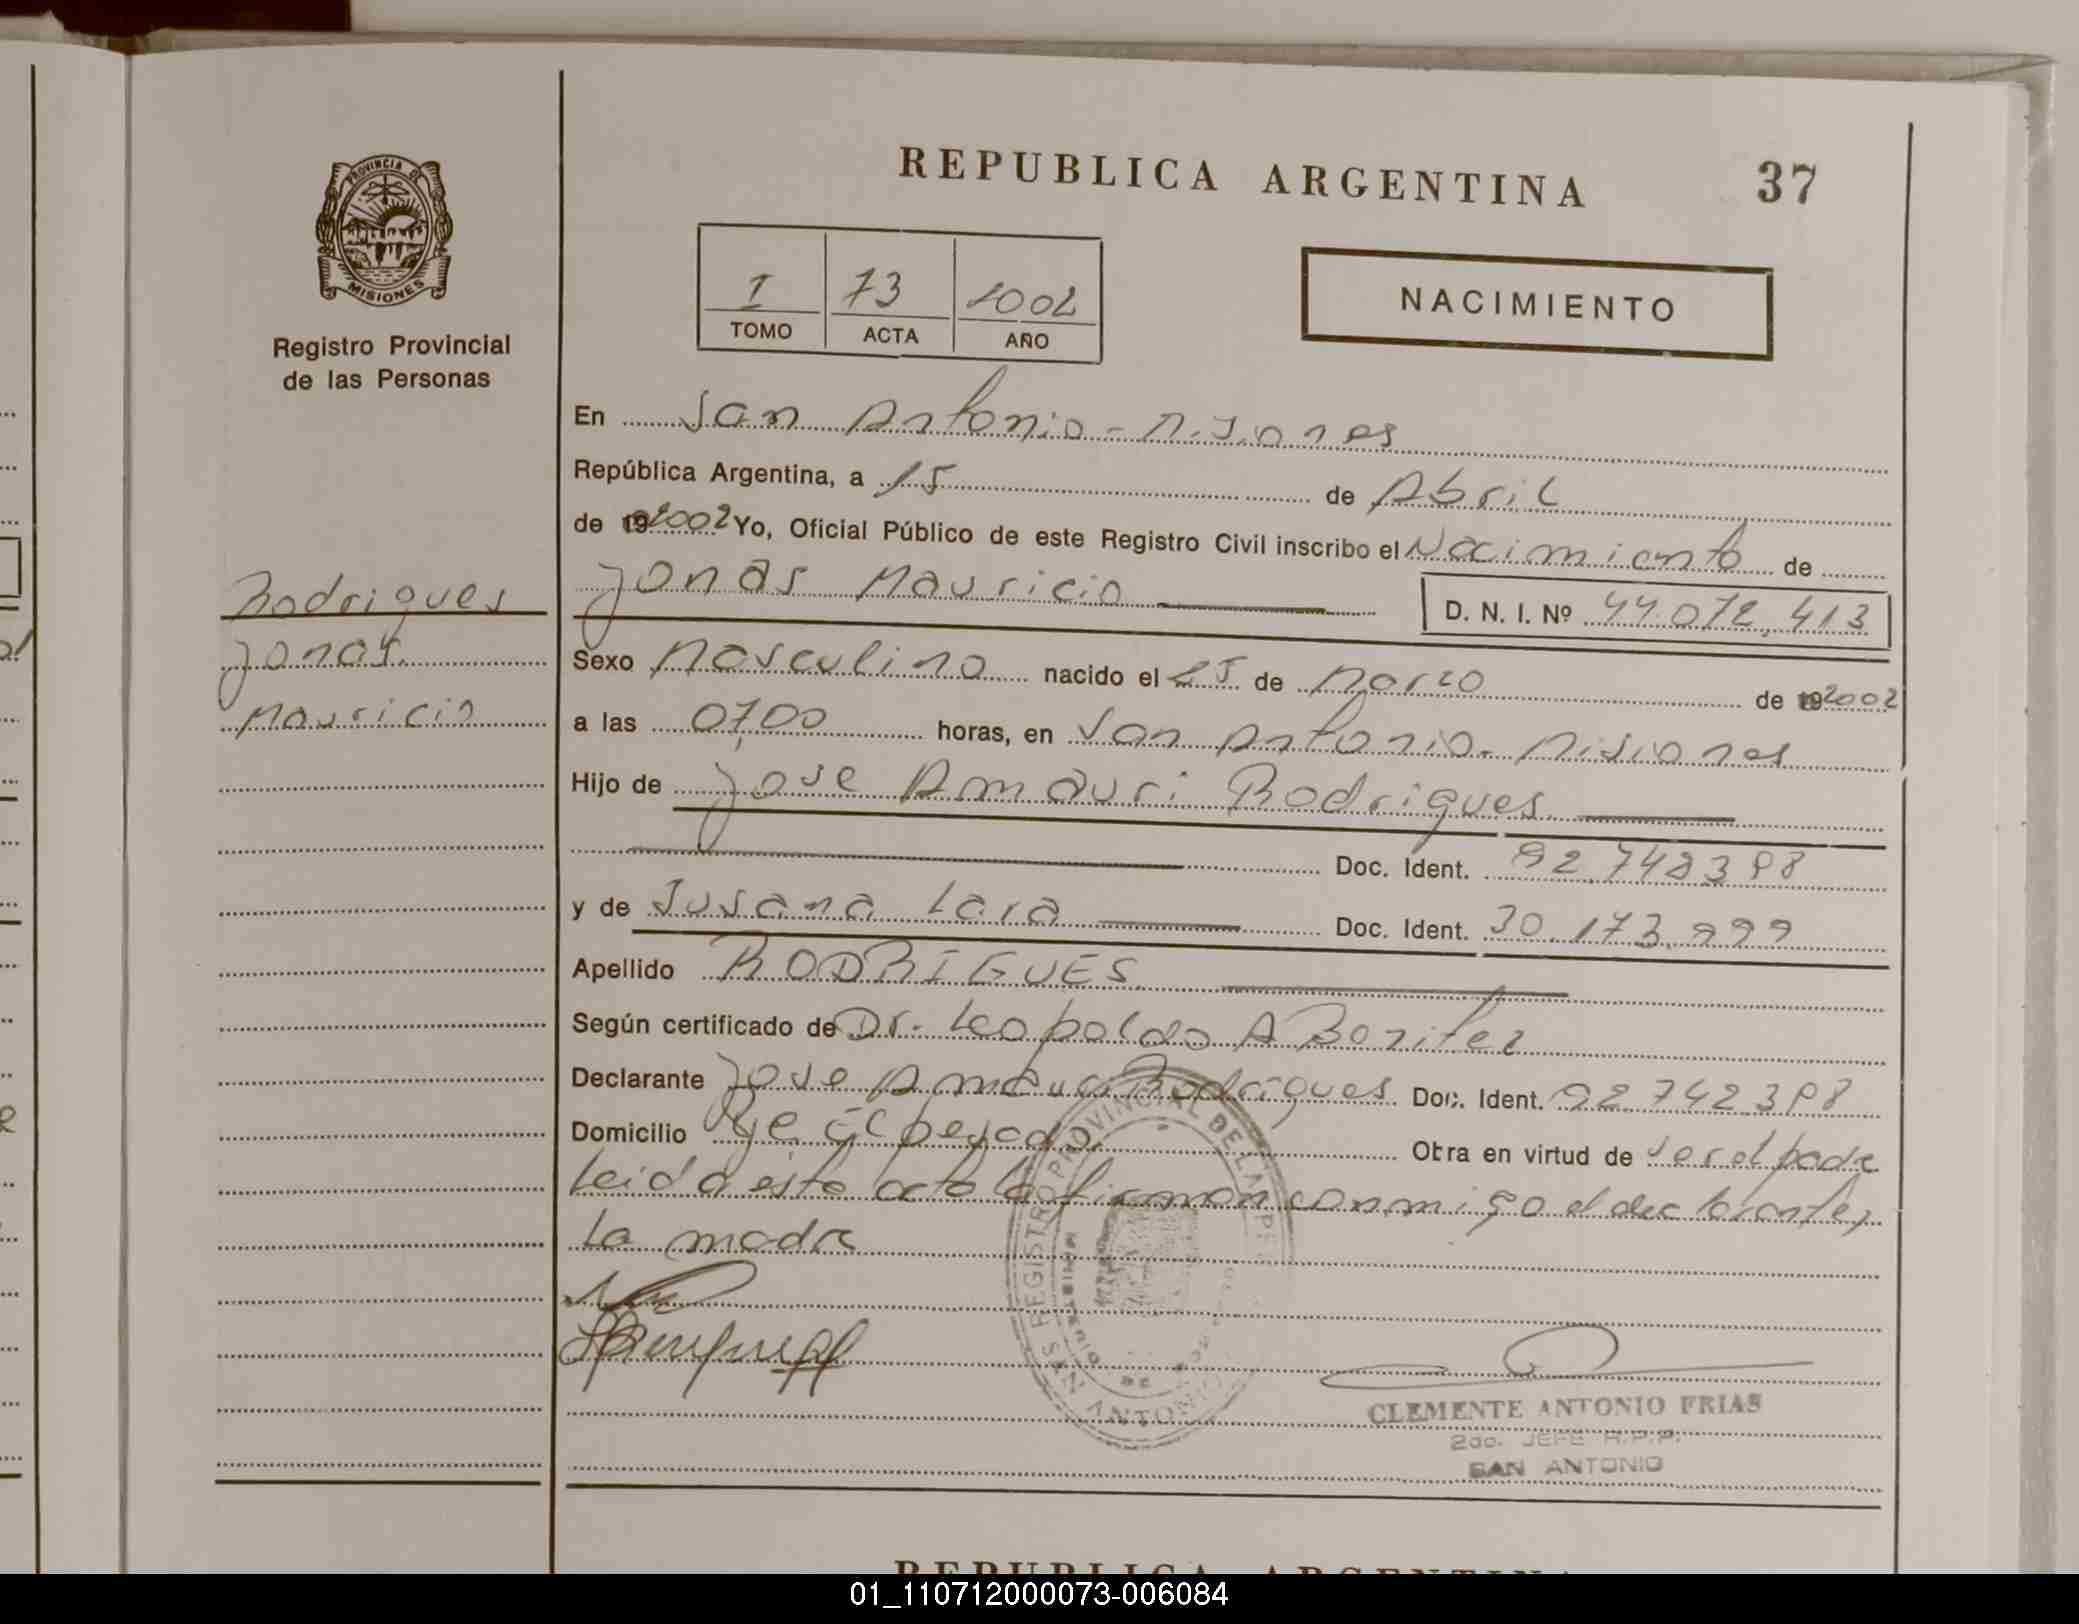 PROVINCIA DE
MISIONES
Registro Provincial
de las Personas
Rodrigues
Jonas
Mauricio
REPUBLICA ARGENTINA 37
I 73 2002
TOMO ACTA AÑO
NACIMIENTO
En San Antonio - Misiones
República Argentina, a 15 de Abril
de 192002 Yo, Oficial Público de este Registro Civil inscribo el Nacimiento de
Jonas Mauricio D. N. I. Nº 44.072.413
Sexo Masculino nacido el 25 de Marzo de 192002
a las 07,00 horas, en San Antonio - Misiones
Hijo de Jose Amauri Rodrigues
Doc. Ident.
y de Susana Lara Doc. Ident. 30.173.999
Apellido RODRIGUES
Según certificado de Dr. Leopoldo A Benitez
Declarante Jose Amauri Rodrigues Doc. Ident.
Domicilio Obra en virtud de ser el padre
Leida esta acta la firman conmigo el declarante y
La madre
REGISTRO PROVINCIAL DE LAS PER
SAN ANTONIO
MINISTERIO DE
CLEMENTE ANTONIO FRIAS
2do. JEFE R.P.P.
SAN ANTONIO
REPUBLICA ARGENTINA
01_110712000073-006084